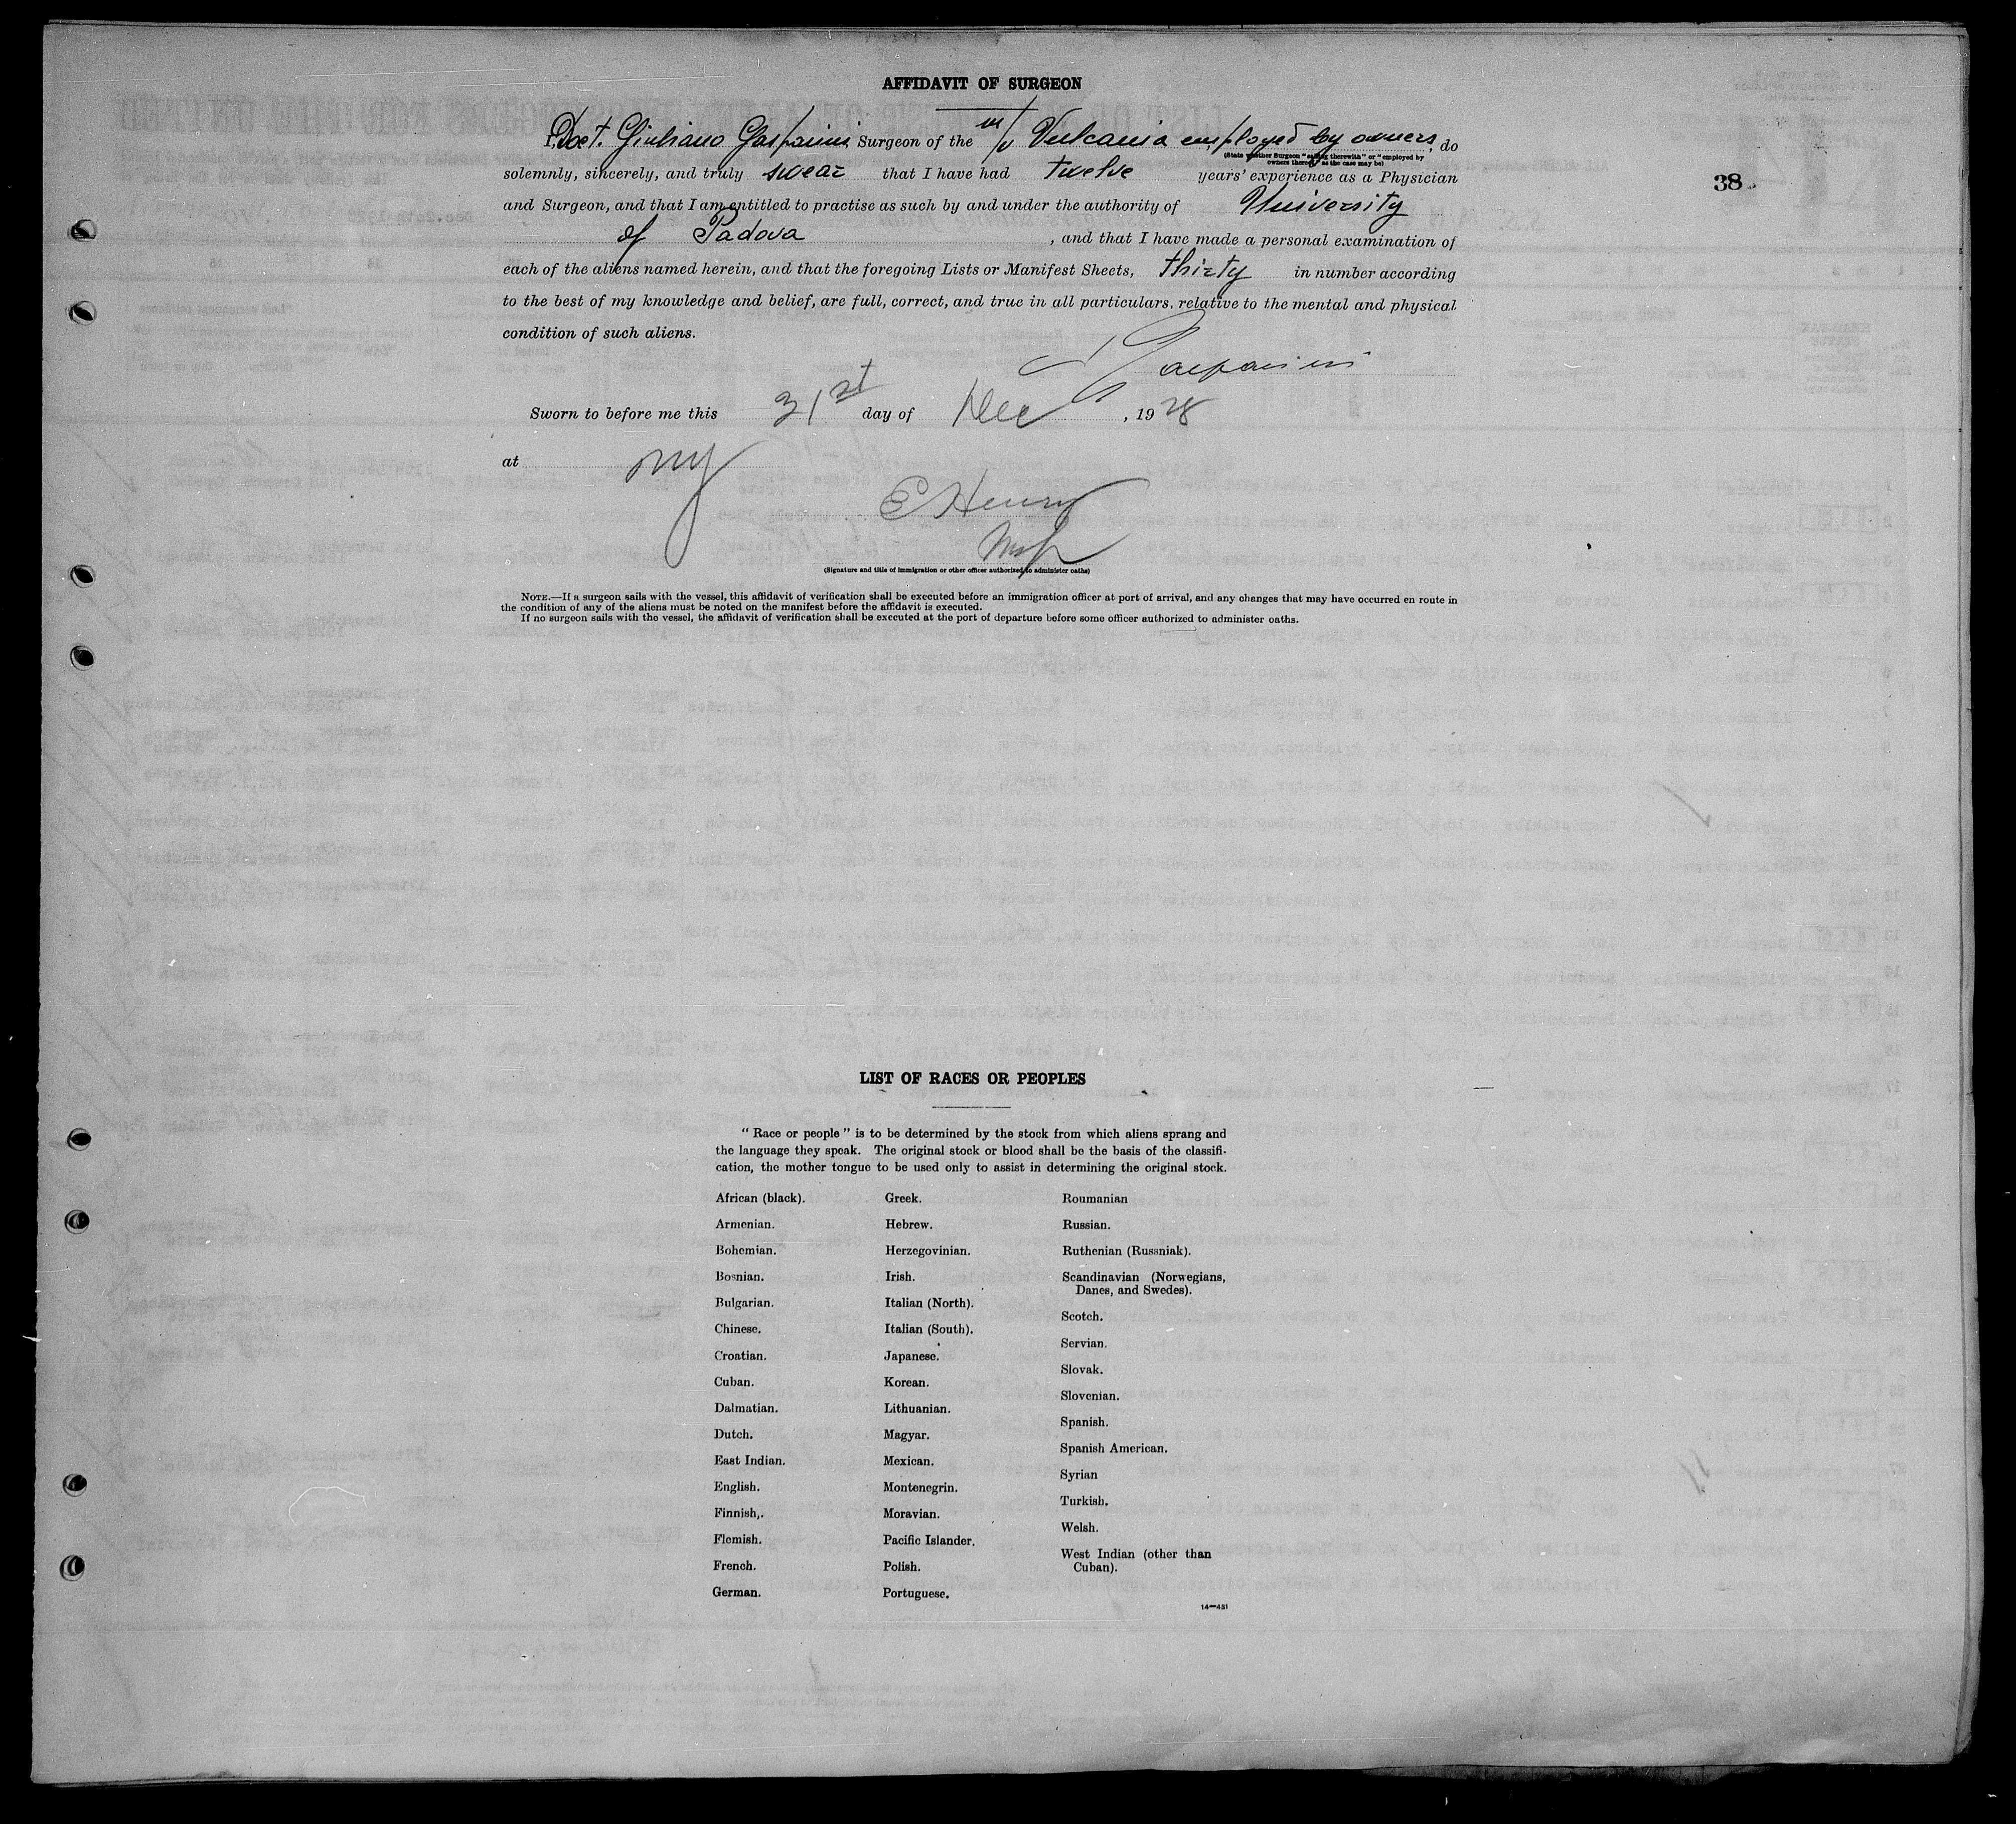 AFFIDAVIT OF SURGEON
I, Doct. Giuliano Gasparini Surgeon of the m/v Vulcania employed by owners, do
(State whether Surgeon "sailing therewith" or "employed by
owners thereof," as the case may be)
solemnly, sincerely, and truly swear that I have had twelve years' experience as a Physician
38
and Surgeon, and that I am entitled to practise as such by and under the authority of University
of Padova, and that I have made a personal examination of
each of the aliens named herein, and that the foregoing Lists or Manifest Sheets, thirty in number according
to the best of my knowledge and belief, are full, correct, and true in all particulars, relative to the mental and physical
condition of such aliens.
Gasparini
Sworn to before me this 31st day of Dec, 1928
at NY
E Henry
Insp
(Signature and title of immigration or other officer authorized to administer oaths)
NOTE.—If a surgeon sails with the vessel, this affidavit of verification shall be executed before an immigration officer at port of arrival, and any changes that may have occurred en route in
the condition of any of the aliens must be noted on the manifest before the affidavit is executed.
If no surgeon sails with the vessel, the affidavit of verification shall be executed at the port of departure before some officer authorized to administer oaths.
LIST OF RACES OR PEOPLES
"Race or people" is to be determined by the stock from which aliens sprang and
the language they speak. The original stock or blood shall be the basis of the classifi-
cation, the mother tongue to be used only to assist in determining the original stock.
African (black).
Armenian.
Bohemian.
Bosnian.
Bulgarian.
Chinese.
Croatian.
Cuban.
Dalmatian.
Dutch.
East Indian.
English.
Finnish,.
Flemish.
French.
German.
Greek.
Hebrew.
Herzegovinian.
Irish.
Italian (North).
Italian (South).
Japanese.
Korean.
Lithuanian.
Magyar.
Mexican.
Montenegrin.
Moravian.
Pacific Islander.
Polish.
Portuguese.
Roumanian
Russian.
Ruthenian (Russniak).
Scandinavian (Norwegians,
Danes, and Swedes).
Scotch.
Servian.
Slovak.
Slovenian.
Spanish.
Spanish American.
Syrian
Turkish.
Welsh.
West Indian (other than
Cuban).
14—431